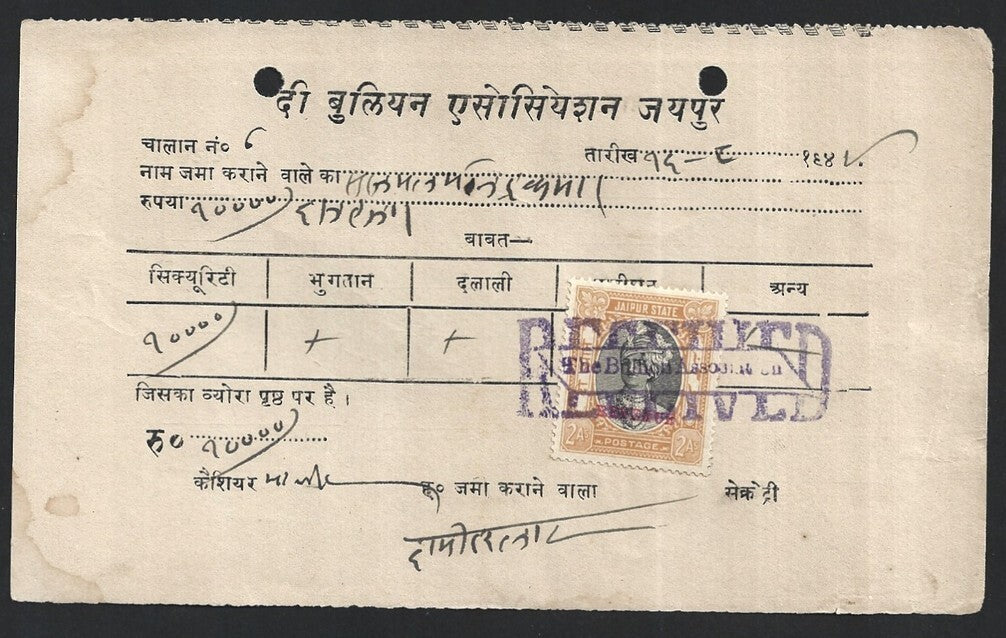 दी बुलियन एसोसियेशन जयपुर
चालान नं० ६
तारीख १८-८ १९४५
नाम जमा कराने वाले का
रुपया १००००)
बाबत—
सिक्यूरिटी भुगतान दलाली अन्य
१००००) + +
JAIPUR STATE
RECEIVED
The Bullion Association
RECEIVED
2As POSTAGE 2As
जिसका व्योरा पृष्ठ पर है।
रु० १००००)
कैशियर ह० जमा कराने वाला सेक्रेट्री
दामोदरलाल